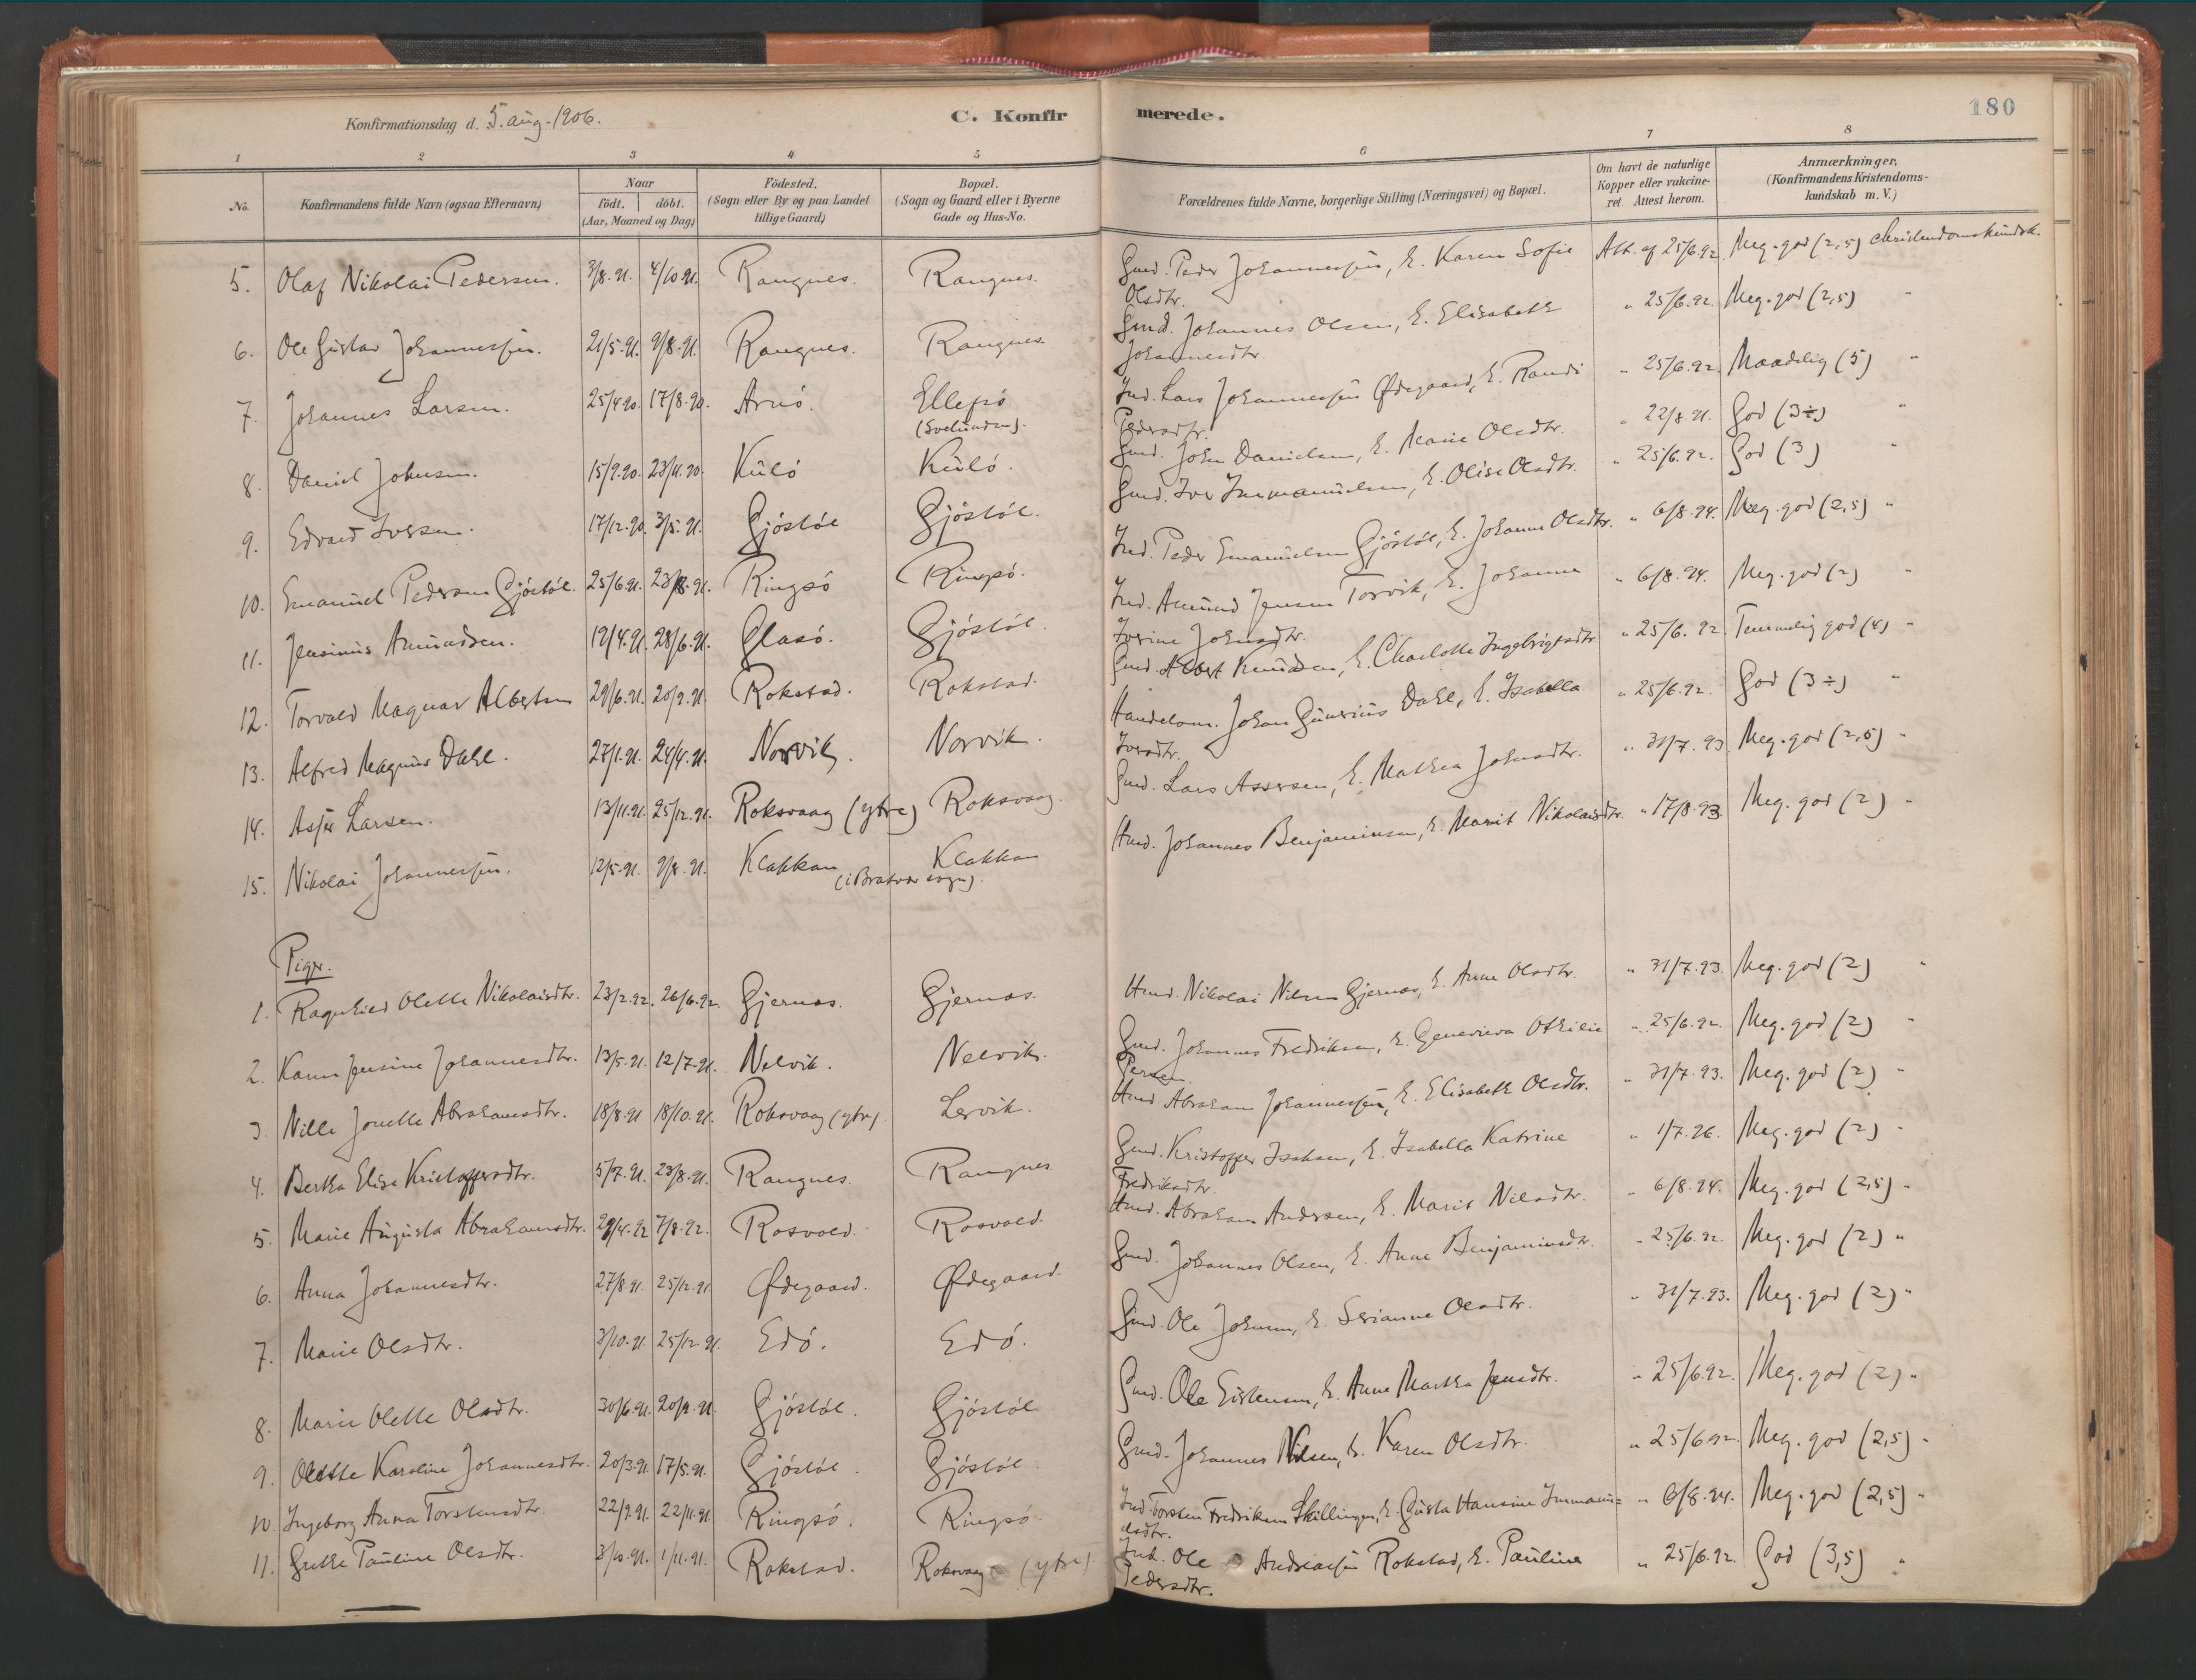 180
Konfirmationsdag d. 5. aug. 1906.
C. Konfirmerede.
1 2 3 4 5 6 7 8
No. Konfirmandens fulde Navn (ogsaa Efternavn) Naar födt. döbt. (Aar, Maaned og Dag) Födested. (Sogn eller By og paa Landet tillige Gaard) Bopæl. (Sogn og Gaard eller i Byerne Gade og Hus-No. Forældrenes fulde Navne, borgerlige Stilling (Næringsvei) og Bopæl. Om havt de naturlige Kopper eller vakcineret. Attest herom. Anmærkninger. (Konfirmandens Kristendomskundskab m. V.)
5. Olaf Nikolai Pedersen. 3/8. 91. 4/10 91. Rangnes. Rangnes. Gmd. Peder Johannessen, E. Karen Sofie Olsdtr. Att. af 25/6.92. Meg. god (2,5) christendomskundsk.
6. Ole Gustav Johannessen. 21/5.91. 9/8.91. Rangnes. Rangnes. Gmd. Johannes Olsen, E. Elisabeth Johannesdtr. " 25/6.92. Meg. god (2,5) "
7. Johannes Larsen. 25/4 90. 17/8.90. Arnö. (Svelunden). Ind. Lars Johannessen Ødegaard, E. Randi Pedersdtr. " 25/6.92. Maadelig (5) "
8. Daniel Johnsen. 15/9.90. 23/11.90. Kulö Kulö. Gmd. John Danielsen, E. Marie Olsdtr. " 22/8 91. God (3÷) "
9. Edvard Iversen. 17/12.90. 3/5.91. Gjöstöl Gjöstöl. Gmd. Iver Immanuelsen, E. Olise Olsdtr. " 25/6.92. God (3)
10. Emanuel Pedersen Gjöstöl. 25/6.91. 23/8.91. Ringsö Ringsö. Ind. Peder Emanuelsen Gjöstöl, E. Johanne Olsdtr. " 6/8.94. Meg. god (2,5) "
11. Jensinius Amundsen. 19/4.91. 28/6.91. Glasö. Gjöstöl. Ind. Amund Jensen Torvik, E. Johanne Iverine Johnsdtr. " 6/8.94. Meg. god (2) "
12. Torvald Magnar Albertsen 29/6.91. 20/9.91. Rokstad. Rokstad. Gmd. Albert Knudsen, E. Charlotte Ingebrigtsdtr. " 25/6. 92 Temmelig god (4) "
13. Alfred Magnus Dahl. 27/1.91. 24/4.91. Norvik. Norvik. Handelsm. Johan Gunerius Dahl, E. Isabella Iversdtr. " 25/6.92. God (3÷) "
14. Larsen. 13/11.91. 25/12.91. Roksvaag (ytre) Roksvaag. Gmd. Lars Assersen, E. Mathea Johnsdtr. " 31/7.93 Meg. god (2,5) "
15. Nikolai Johannessen. 12/5.91. 9/8.91. Klakken Klakken (i Bratvær sogn). Hmd. Johannes Benjaminsen, E. Marit Nikolaisdtr. " 17/8.93. Meg. god (2) "
Piger.
1. Ragnhild Olette Nikolaisdtr. 23/2.92. 26/6.92. Gjernas. Gjernas. Hmd. Nikolai Nilsen Gjernas, E. Anne Olsdtr. " 31/7.93. Meg. god (2) "
2. Karen Jensine Johannesdtr. 13/5.91. 12/7.91. Nelvik. Nelvik. Gmd. Johannes Fredriksen, E. Genevieva Othilie " 25/6.92. Meg. god (2) "
3. Nille Jonette Abrahamsdtr. 18/8.91 18/10.91. Roksvaag (ytre) Lervik. Hmd. Abraham Johannessen, E. Elisabeth Olsdtr. " 31/7.93. Meg. god (2) "
4. Bertha Elise Kristoffersdtr. 5/7.91. 23/8.91. Rangnes. Rangnes. Gmd. Kristoffer Isaksen, E. Isabella Katrine Fredriksdtr. " 1/7.96. Meg. god (2) "
5. Marie Augusta Abrahamsdtr. 29/4.92 7/8.92. Rosvold. Rosvold. Hmd. Abraham Andersen, E. Marit Nilsdtr. " 6/8.94. Meg. god (2,5) "
6. Anna Johannesdtr. 27/8.91. 25/12.91. Ødegaard. Ødegaard. Gmd. Johannes Olsen, E. Anne Benjaminsdtr. " 25/6.92. Meg. god (2) "
7. Marie Olsdtr. 3/10.91. 25/12.91. Edö. Edö. Gmd. Ole Johnsen, E. Serianne Olsdtr. " 31/7.93. Meg. god (2) "
8. Marie Olette Olsdtr. 30/6.91. 20/9.91. Gjöstöl. Gjöstöl Gmd. Ole Eistensen, E. Anne Martha Jensdtr. " 25/6.92. Meg. god (2) "
9. Oldette Karoline Johannesdtr. 20/3.91. 17/5.91. Gjöstöl. Gjöstöl Gmd. Johannes Nilsen, E. Karen Olsdtr. " 25/6 92. Meg. god (2,5) "
10. Ingeborg Anna Torstensdtr. 22/9.91. 22/11.91. Ringsö. Ringsö Ind. Torsten Fredriksen Skillingen, E. Gusta Hansine Immanuelsdtr. " 6/8.94. Meg. god (2,5) "
11. Grethe Pauline Olsdtr. 3/10.91. 1/11.91. Rokstad. Roksvaag (ytre) Ind. Ole Andreassen Rokstad, E. Pauline Pedersdtr. " 25/6.92. God (3,5) "